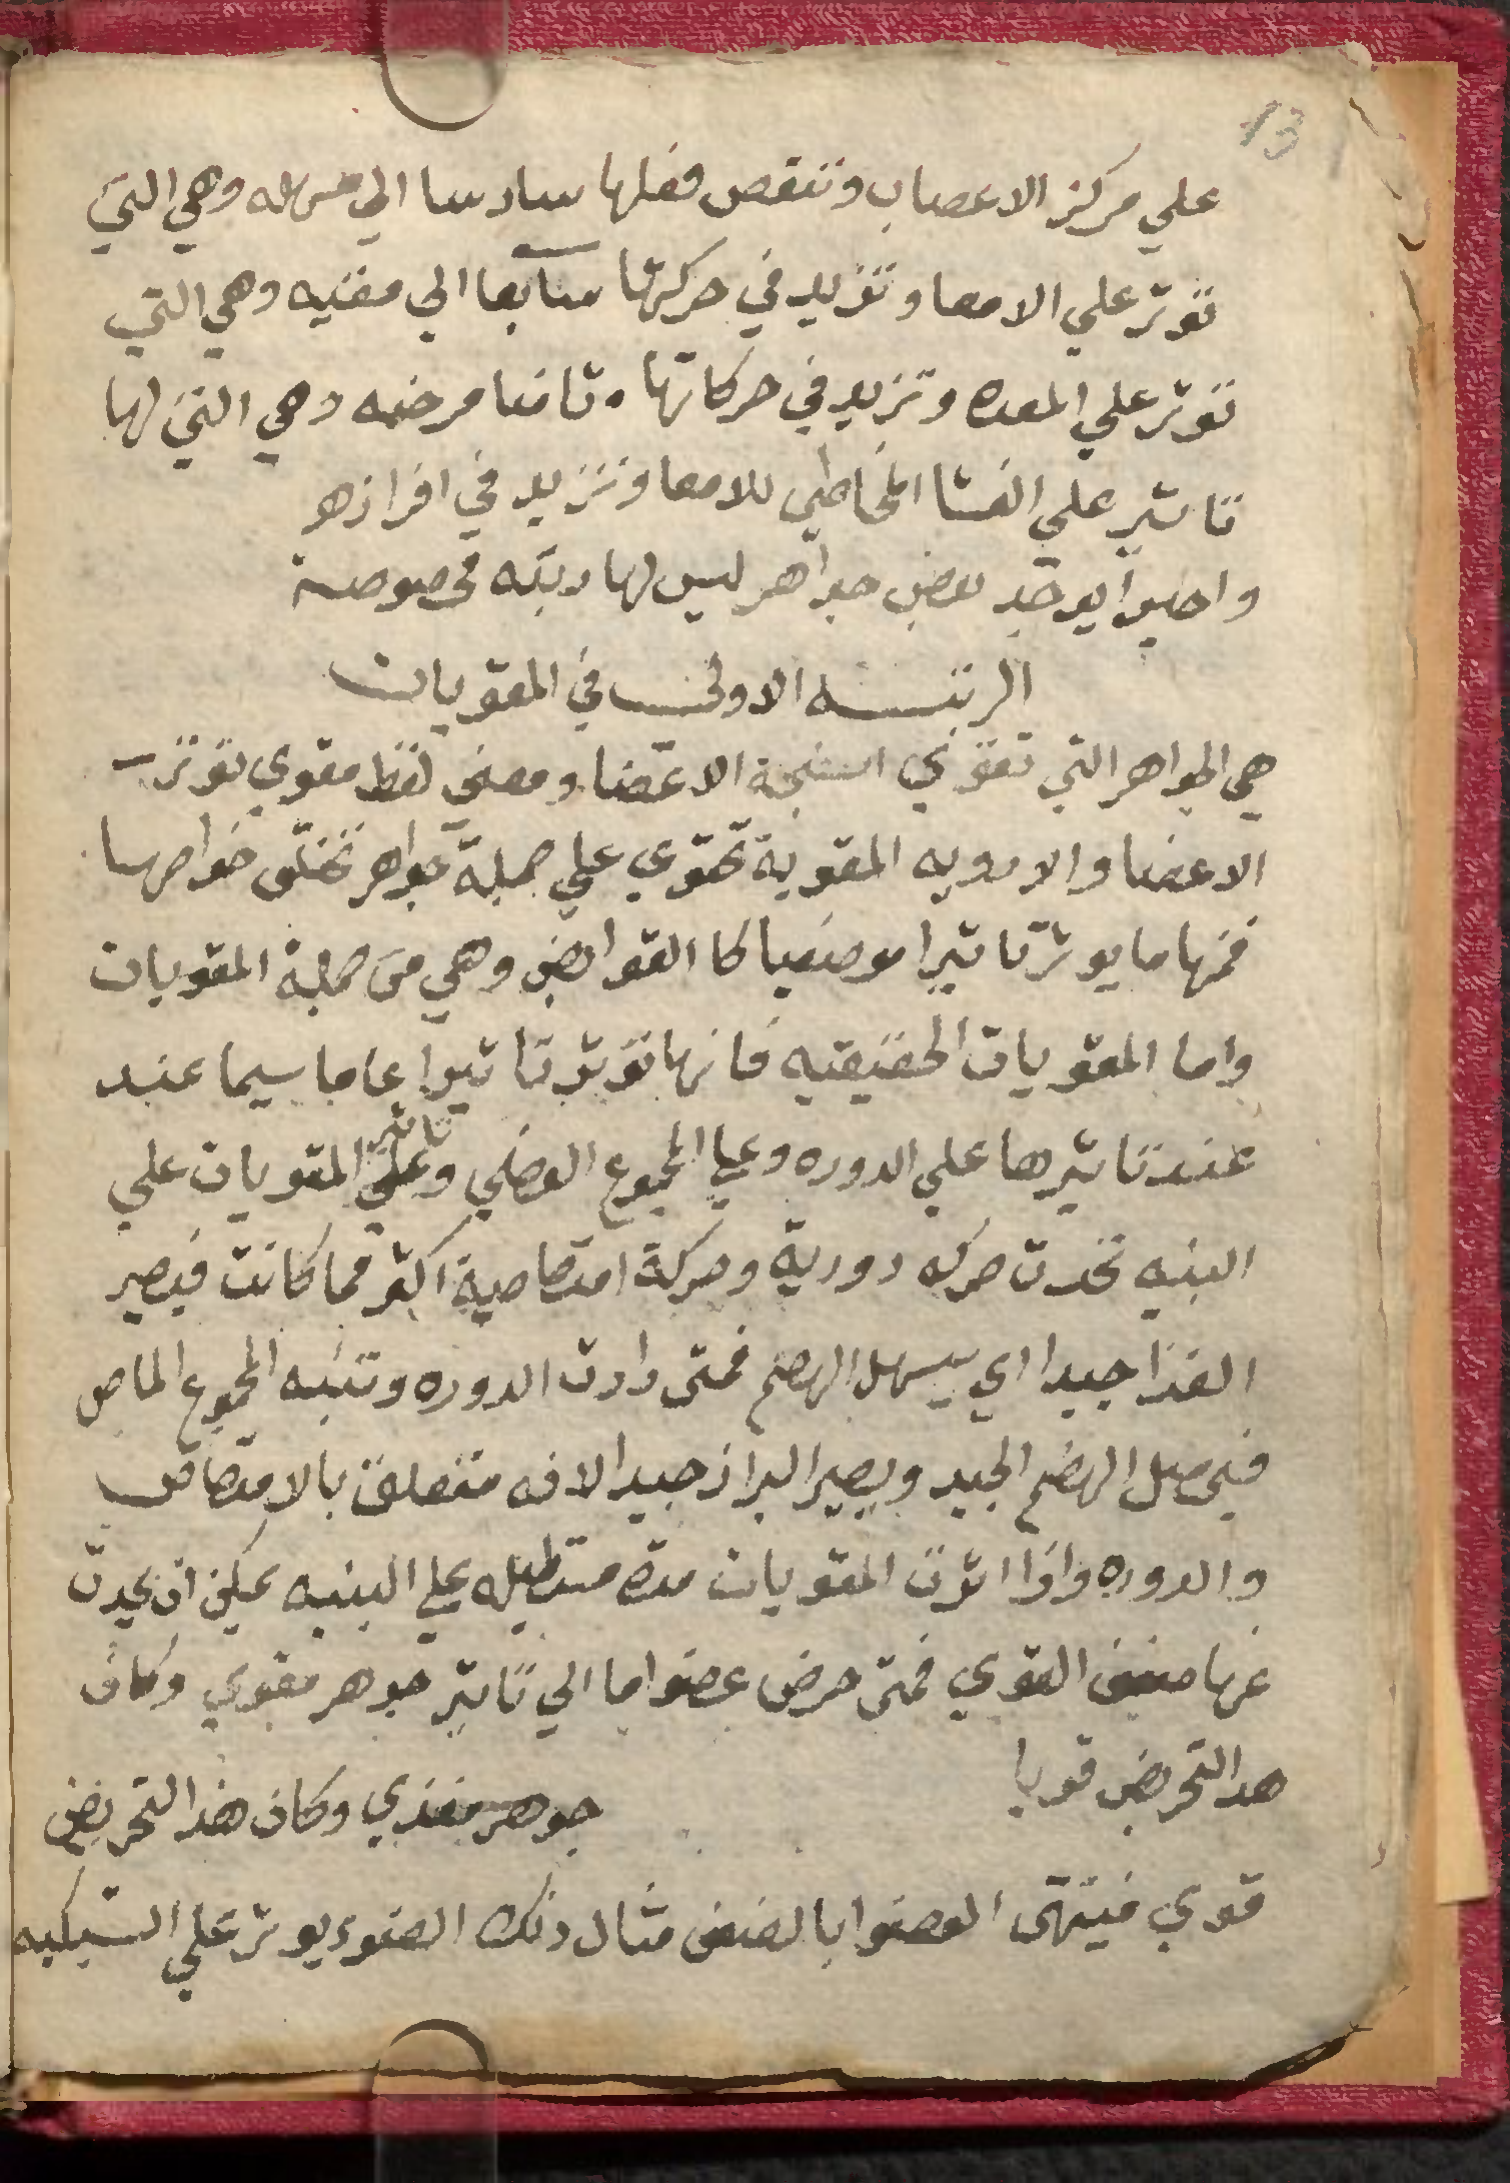 13
علي مركز الاعصاب وتنقص فعلها سادسا الي مسهله وهي التي
توثر علي الامعا وتزيد في حركتها سابعا الي مقئيه وهي التي
توثر علي المعده وتزيد في حركاتها ٠ ثامنا مرخيه وهي التي لها
تاثير علي الغشا المخاطي للامعا وتزيد في افرازهو
واخيرا يوجد بعض جواهر ليس لها رتبه مخصوصة
الرتبــه الاولي في المقويات
هي الجواهر التي تقوي انسجة الاعضا ومعني لفظ مقوي توتر
الاعضا والادويه المقوية تحتوي علي جملة جواهر تختلف خواصها
فمنها ما يوثر تاثيرا موضعيا كا القوابض وهي من جملة المقويات
واما المقويات الحقيقيه فانها توثر تاثيرا عاما سيما عند
عند تاثيرها علي الدوره وعلي المجموع العضلي وعلي تاثير المقويات علي
البنيه تحدث حركه دورية وحركة امتصاصية اكثر مما كانت فيصير
الغذا جيدا اي يسهل الهضم فمتي زادت الدوره وتنبه المجموع الماص
فيحصل الهضم الجيد ويصير البراز جيدا لانه متعلق بالامتصاص
والدوره واذا اثرت المقويات مدة مستطيله علي البنيه يمكن ان يحدث
عنها ضعف القوي فمتي حرض عضوا ما الي تاثير جوهر مقوي وكان
هدا التحريض قويا جوهر مغذي وكان هذا التحريض
قوي فينتهي العضوا بالضعف مثال ذلك الضوء يوثر علي الشبكيه